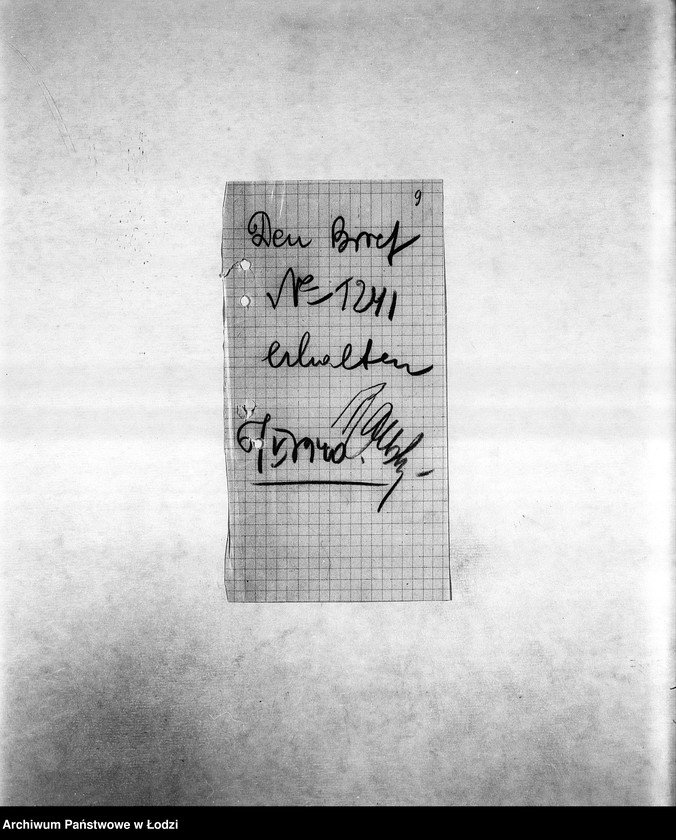 9
Den Brief
No 1241
erhalten
6/IV 1940.
Archiwum Państwowe w Łodzi